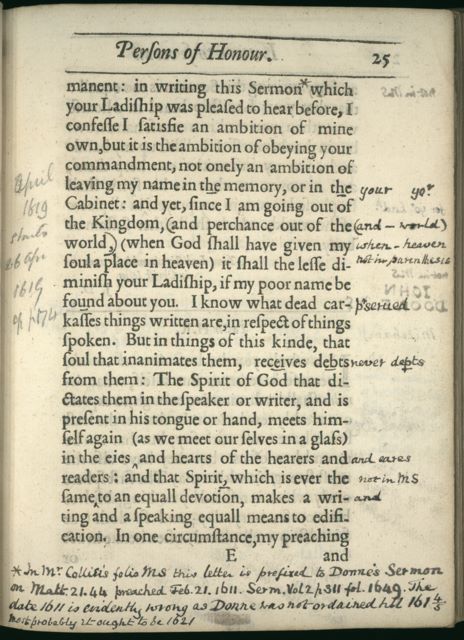 Persons of Honour. 25
manent: in writing this Sermon* which
your Ladiship was pleased to hear before, I
confesse I satisfie an ambition of mine
own, but it is the ambition of obeying your
commandment, not onely an ambition of
leaving my name in the memory, or in the your yoʳ
Cabinet: and yet, since I am going out of
the Kingdom, (and perchance out of the (and – world)
world,) (when God shall have given my when – heaven
soul a place in heaven) it shall the lesse di- not in parenthesis
minish your Ladiship, if my poor name be
found about you. I know what dead car- pʳserued
kasses things written are, in respect of things
spoken. But in things of this kinde, that
soul that inanimates them, receives debts never depts
from them: The Spirit of God that di-
ctates them in the speaker or writer, and is
present in his tongue or hand, meets him-
self again (as we meet our selves in a glass)
in the eies ^ and hearts of the hearers and and eares
readers: and that Spirit, which is ever the not in MS
same, ^ to an equall devotion, makes a wri- and
ting and a speaking equall means to edifi-
cation. In one circumstance, my preaching
E and
April
1619
starts
26 Apr
1619
cf p 174
* In Mr. Collitis folio MS this letter is prefixed to Donne's Sermon
on Matt. 21.44 preached Feb. 21. 1611. Serm. Vol 2 p 311 fol. 1649. The
date 1611 is evidently wrong as Donne was not ordained till 161 4/5
most probably it ought to be 1621